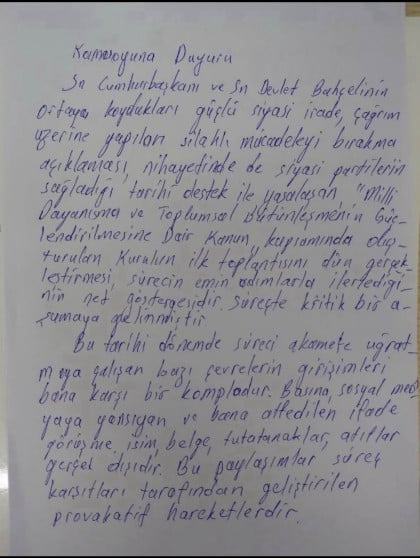 Kamuoyuna Duyuru
Sn Cumhurbaşkanı ve Sn Devlet Bahçelinin
ortaya koydukları güçlü siyasi irade, çağrım
üzerine yapılan silahlı mücadeleyi bırakma
açıklaması, nihayetinde de siyasi partilerin
sağladığı tarihi destek ile yasalaşan, "Milli
Dayanışma ve Toplumsal Bütünleşmenin Güç-
lendirilmesine Dair Kanun, kapsamında oluş-
turulan Kurulun ilk toplantısını dün gerçek-
leştirmesi, sürecin emin adımlarla ilerlediği-
nin net göstergesidir. Süreçte kritik bir a-
şamaya gelinmiştir
Bu tarihi dönemde süreci akamete uğrat-
maya çalışan bazı çevrelerin girişimleri
bana karşı bir komplodur. Basına, sosyal med-
yaya yansıyan ve bana atfedilen ifade
görüşme, isim, belge, tutatanaklar, atıflar
gerçek dışıdır. Bu paylaşımlar süreç
karşıtları tarafından geliştirilen
provakatif hareketlerdir.